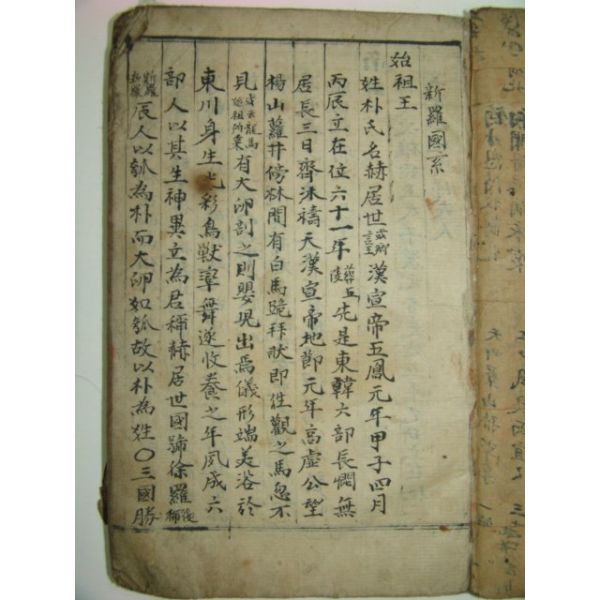 新羅國系
始祖王
姓朴氏名赫居世漢宣帝五鳳元年甲子四月
丙辰立在位六十一年葬五陵先是東韓六部長憫無
居長三日齊沐禱天漢宣帝地節元年高虛公望
楊山蘿井傍林間有白馬跪拜狀即往觀之馬忽不
見有大卵剖之則嬰兒出焉儀形端美浴於
東川身生光彩鳥獸率舞遂收養之年夙成六
部人以其生神異立為君稱赫居世國號徐羅
辰人以瓠為朴而大卵如瓠故以朴為姓〇三國勝